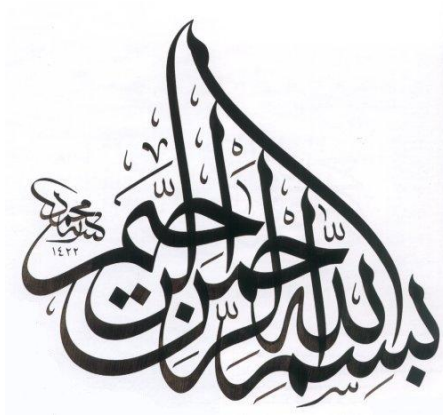 بسم الله الرحمن الرحيم
محمد
١٤٢٢